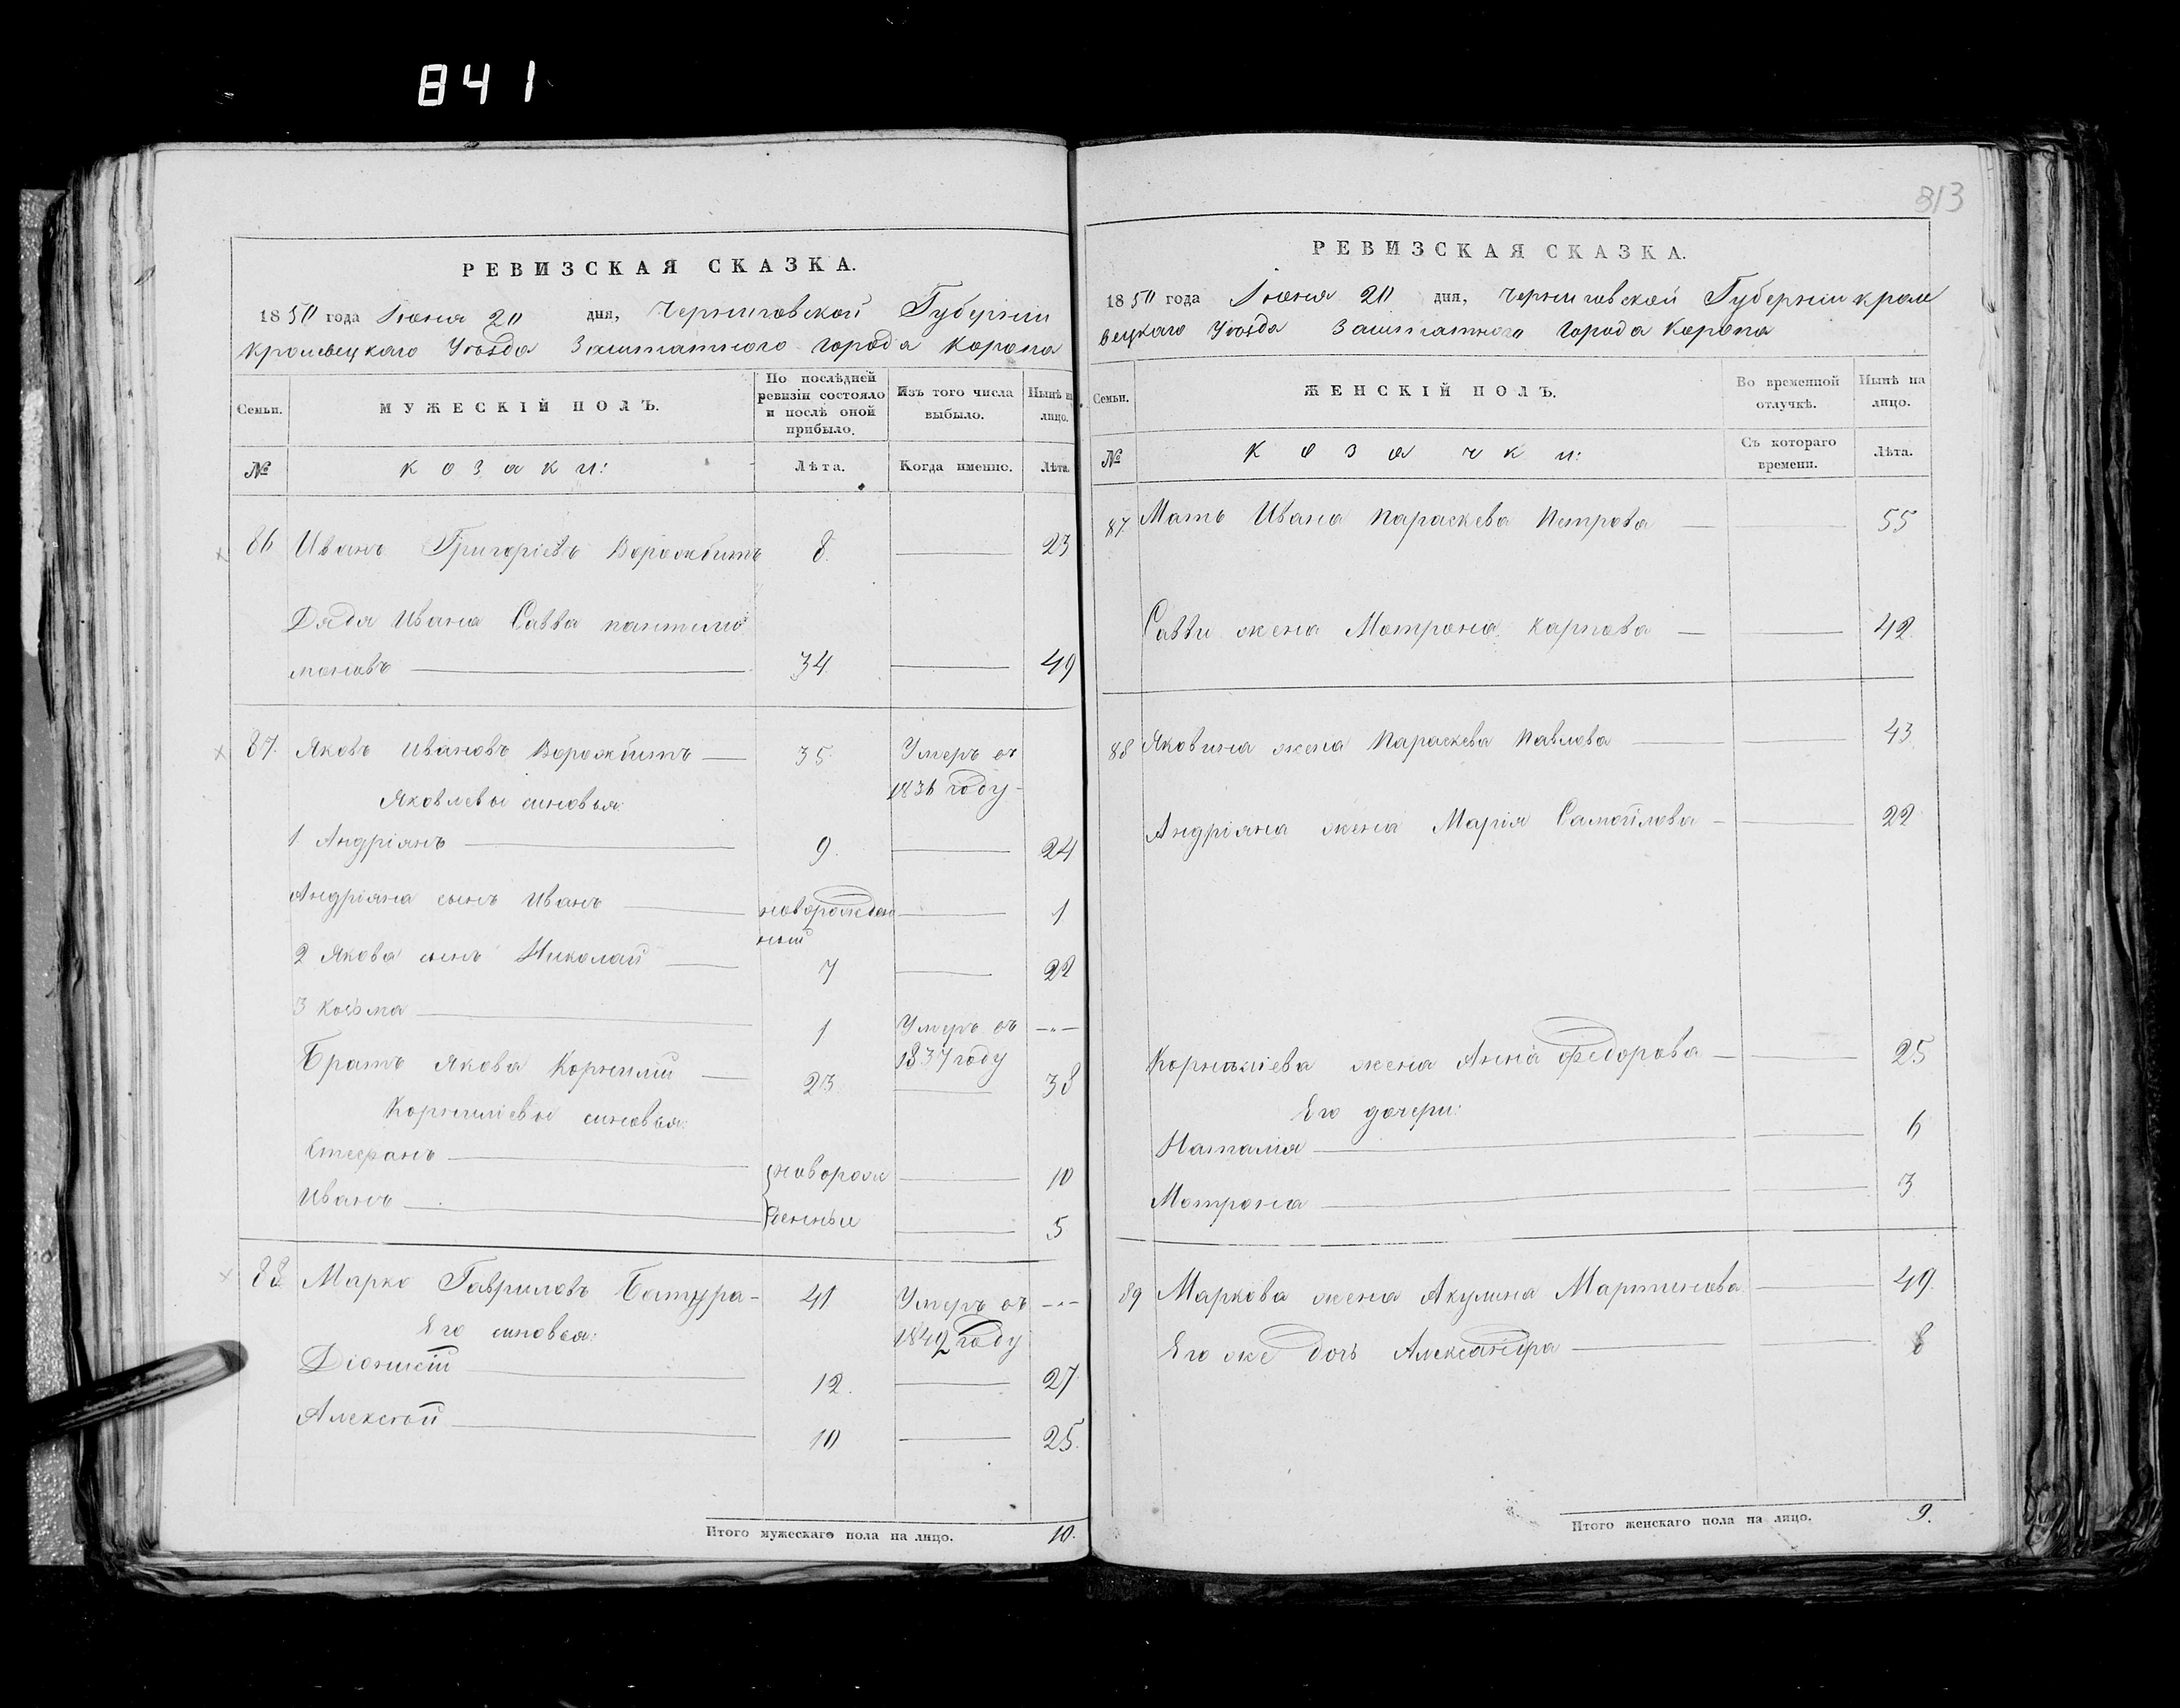 841
813
РЕВИЗСКАЯ СКАЗКА.
1850 года Іюня 20 дня, Черниговской Губерніи
Кролевецкаго Уѣзда Заштатного города Коропа
Семьи. МУЖЕСКІЙ ПОЛЪ. По послѣдней ревизіи состояло и послѣ оной прибыло. Изъ того числа выбыло. Нынѣ на лицо.
№ Козаки: Лѣта. Когда именно. Лѣта.
86 Иванъ Григоріевъ Ворожбитъ 8. 23
Дядя Ивана Савва пантили
моновъ 34. 49
87. Яковъ Ивановъ Ворожбитъ 35 Умеръ въ
1836 году
Яковлевы синовья:
1 Андріянъ 9. 24
Андріяна сынъ Иванъ новорожден
ный 1
2 Якова сынъ Николай 7 22
3 Косьма 1 Умеръ въ
1837 году
Братъ Якова Корнилій 23 38
Корниліевы синовья:
Стефанъ новорож 10
Иванъ денныи 5
88 Марко Гавриловъ Батура 41 Умеръ въ
1849 году
Его синовья:
Діонисій 12. 27
Алексѣй 10 25.
Итого мужескаго пола на лицо. 10.
РЕВИЗСКАЯ СКАЗКА.
1850 года Іюня 20 дня, Черниговской Губерніи Кроле
вецкаго Уѣзда Заштатного Города Коропа
Семьи. ЖЕНСКІЙ ПОЛЪ. Во временной отлучкѣ. Нынѣ на лицо.
№ Козачки: Съ котораго времени. Лѣта.
87. Мать Ивана Параскева Петрова 55
Савви жена Мотрона Карпова 42
88 Яковина жена Параскева Павлова 43
Андріяна жена Марія Самойлова 22
Корниліева жена Анна Федорова 25
Его дочери:
Наталія 6
Мотрона 3
89 Маркова жена Акулина Мартинова 49.
Его же дочь Александра 8
Итого женскаго пола на лицо. 9.